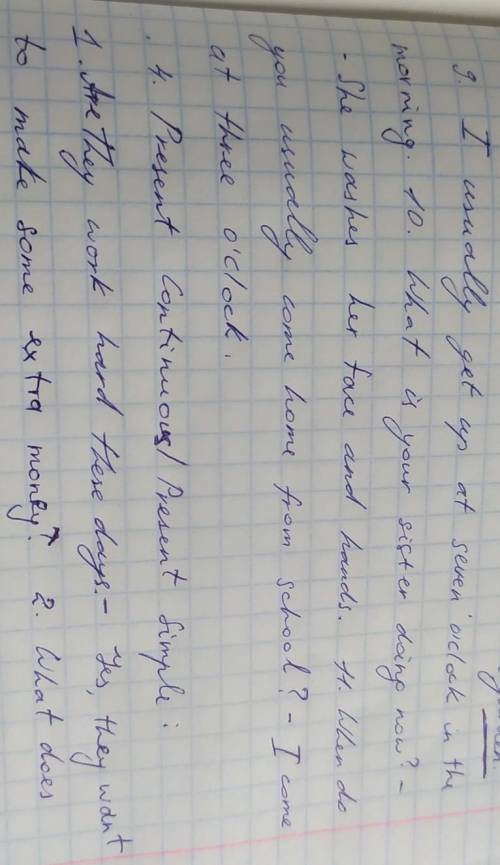 9. I usually get up at seven o'clock in the
morning. 10. What is your sister doing now? -
- She washes her face and hands. 11. When do
you usually come home from school? - I come
at three o'clock.
4. Present Continuous/ Present Simple:
1. Are they work hard these days. - Yes, they want
to make some extra money. 2. What does